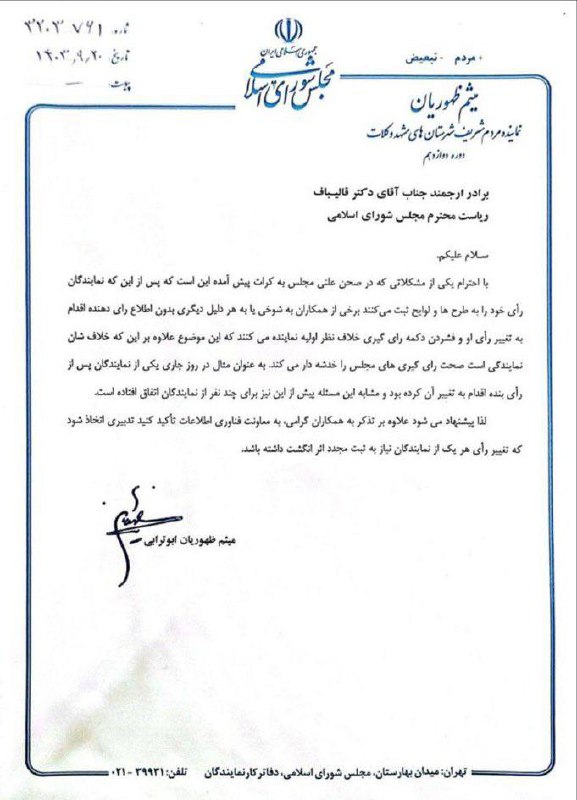 جمهوری اسلامی ایران
مجلس شورای اسلامی
شماره: ۳۲۰۳/۷۶۱
تاریخ: ۱۴۰۳,۹,۲۰
پیوست: —
+ مردم - تبعیض
میثم ظهوریان
نماینده مردم شریف شهرستان های مشهد و کلات
دوره دوازدهم
برادر ارجمند جناب آقای دکتر قالیباف
ریاست محترم مجلس شورای اسلامی
سلام علیکم.
با احترام یکی از مشکلاتی که در صحن علنی مجلس به کرات پیش آمده این است که پس از این که نمایندگان
رأی خود را به طرح ها و لوایح ثبت می‌کنند برخی از همکاران به شوخی یا به هر دلیل دیگری بدون اطلاع رای دهنده اقدام
به تغییر رأی او و فشردن دکمه رای گیری خلاف نظر اولیه نماینده می کنند که این موضوع علاوه بر این که خلاف شان
نمایندگی است صحت رای گیری های مجلس را خدشه دار می کند. به عنوان مثال در روز جاری یکی از نمایندگان پس از
رأی بنده اقدام به تغییر آن کرده بود و مشابه این مسئله پیش از این نیز برای چند نفر از نمایندگان اتفاق افتاده است.
لذا پیشنهاد می شود علاوه بر تذکر به همکاران گرامی، به معاونت فناوری اطلاعات تأکید کنید تدبیری اتخاذ شود
که تغییر رأی هر یک از نمایندگان نیاز به ثبت مجدد اثر انگشت داشته باشد.
میثم ظهوریان ابوترابی
تهران: میدان بهارستان، مجلس شورای اسلامی، دفاتر کار نمایندگان تلفن: ۳۹۹۳۱-۰۲۱